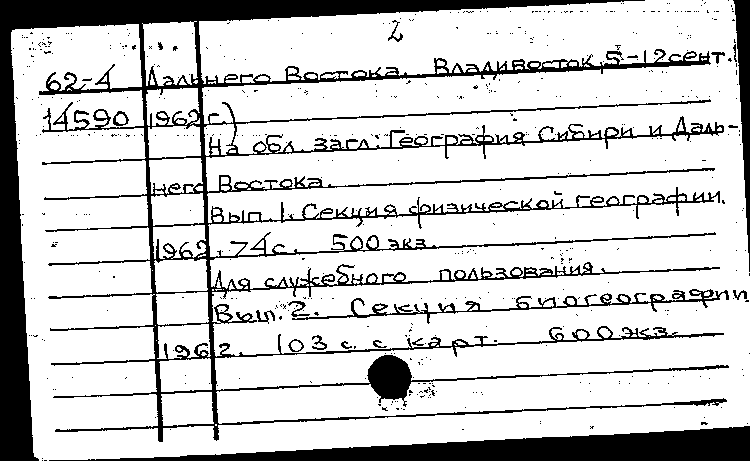 2
62-4 Дальнего Востока. Владивосток, 5-12 сент.
14590 1962 г.)
На обл. загл.: География Сибири и Даль-
него Востока.
Вып. 1. Секция физической географии.
1962. 74 с. 500 экз.
Для служебного пользования.
Вып. 2. Секция биогеографии
1962. 103 с. с карт. 600 экз.